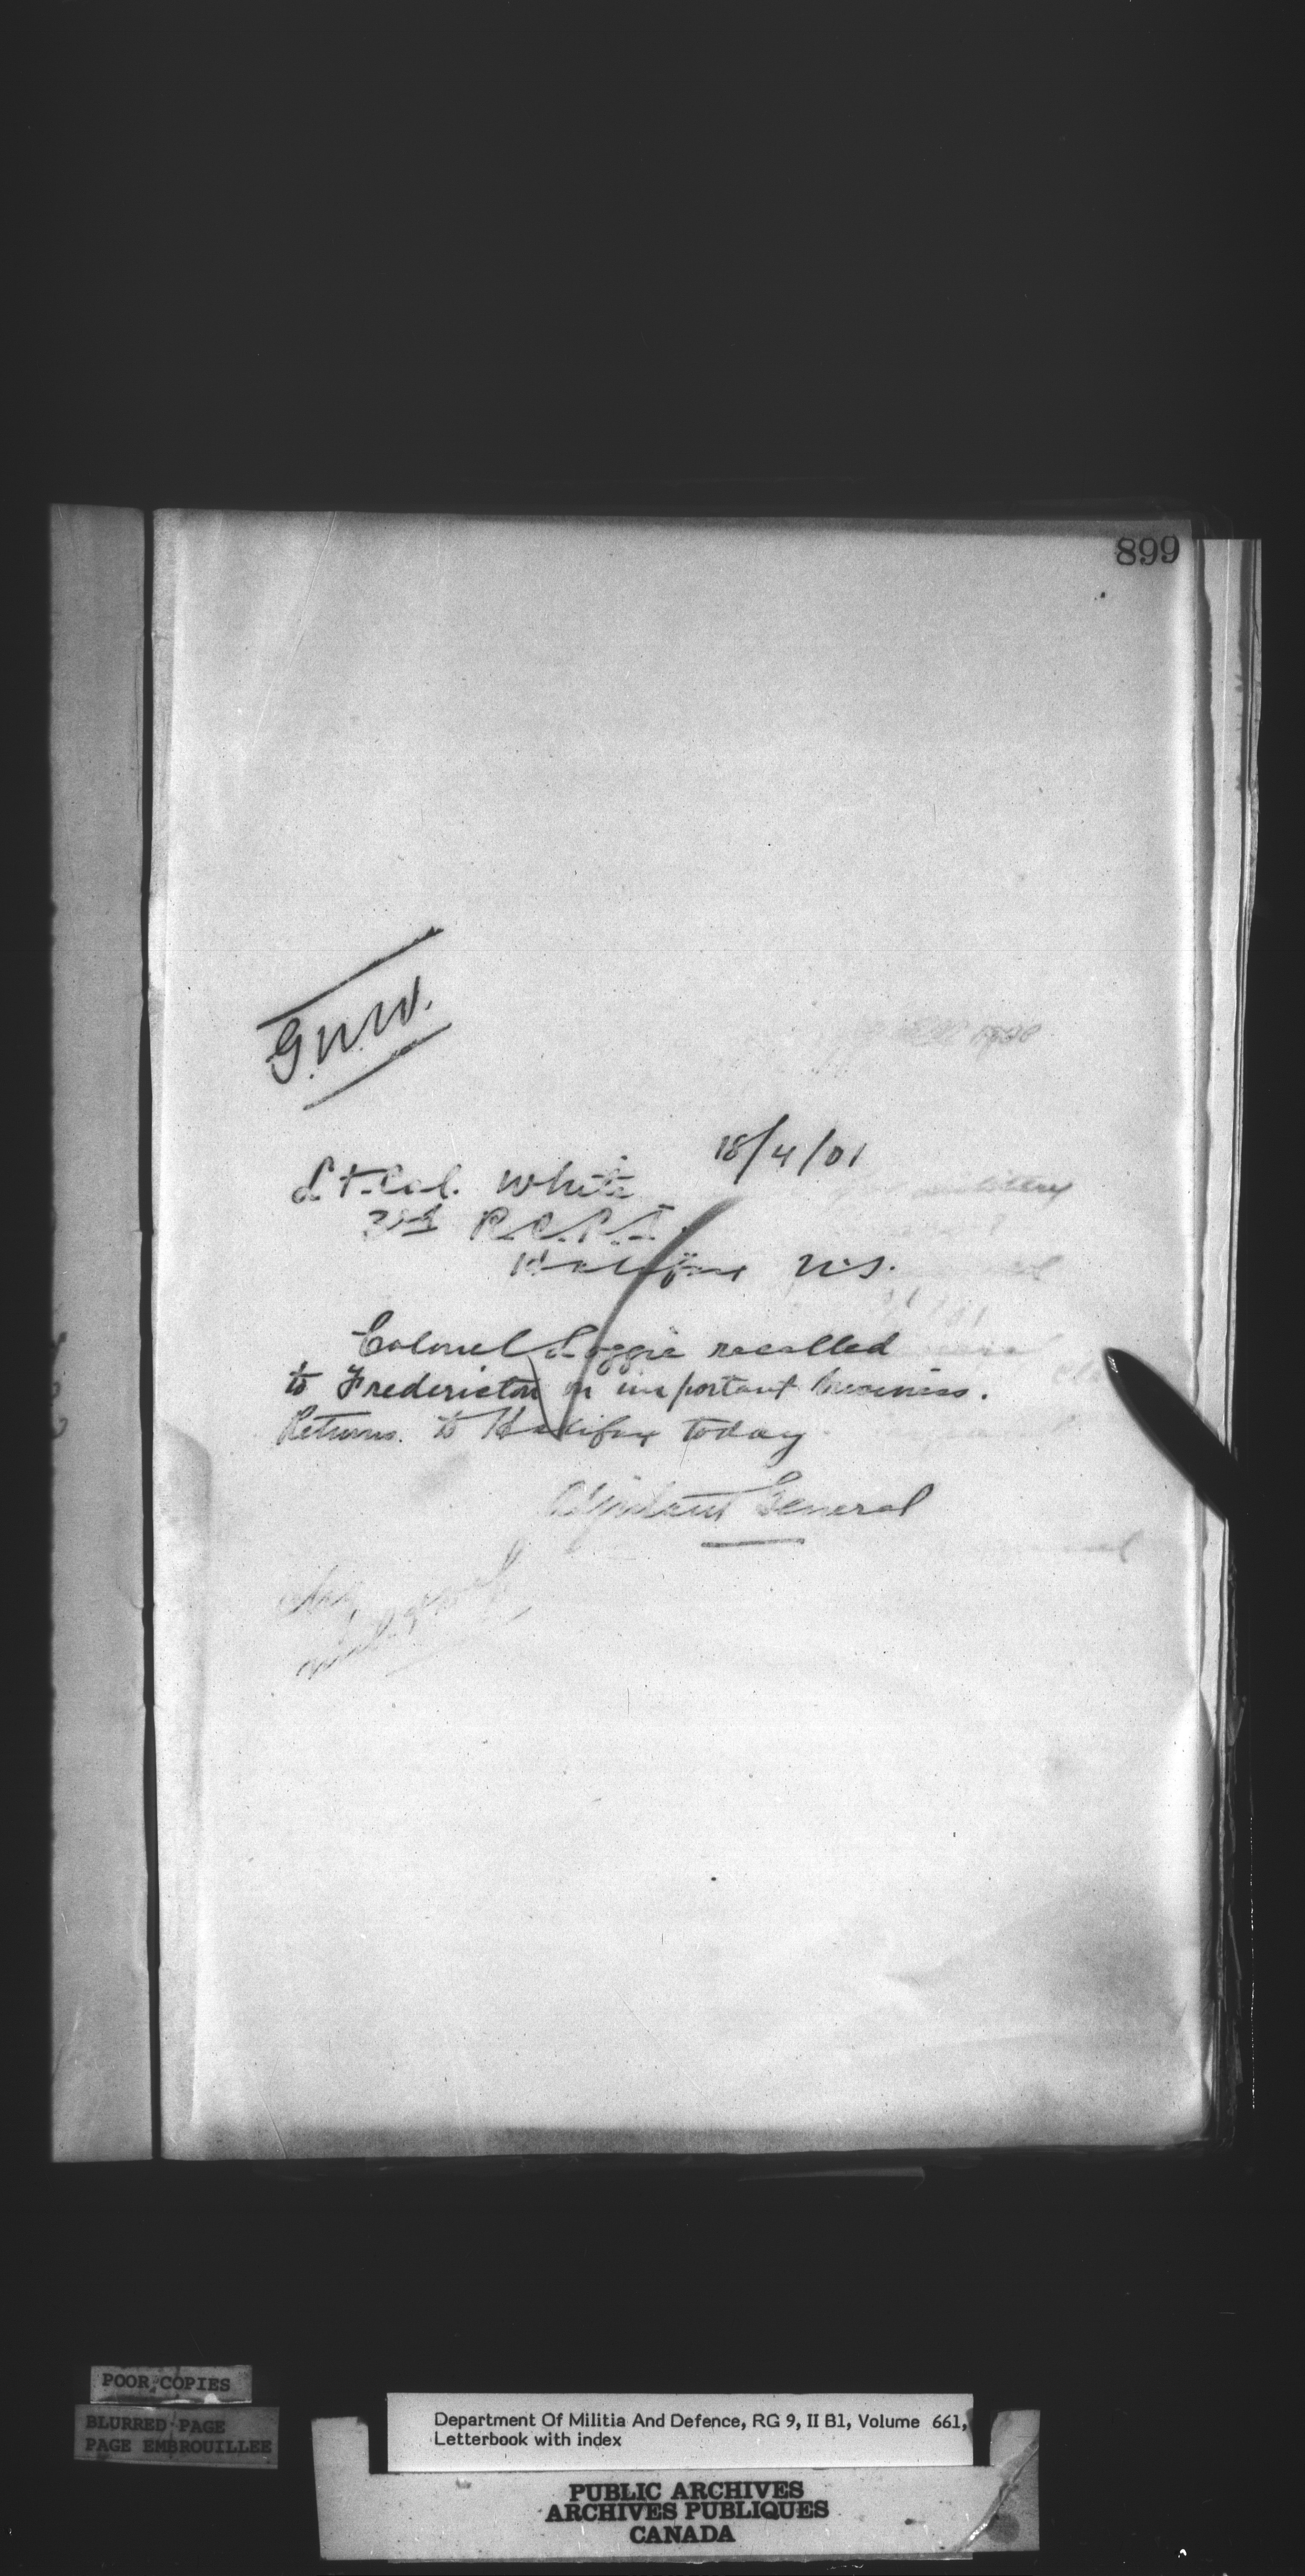 899
G.N.W.
18/4/01
Lt. Col. White
3rd R.C.R.I.
Halifax N.S.
Colonel Loggie recalled
to Fredericton on important business.
Returns to Halifax today
Adjutant General
POOR COPIES
BLURRED PAGE
PAGE EMBROUILLEE
Department Of Militia And Defence, RG 9, II B1, Volume 661,
Letterbook with index
PUBLIC ARCHIVES
ARCHIVES PUBLIQUES
CANADA